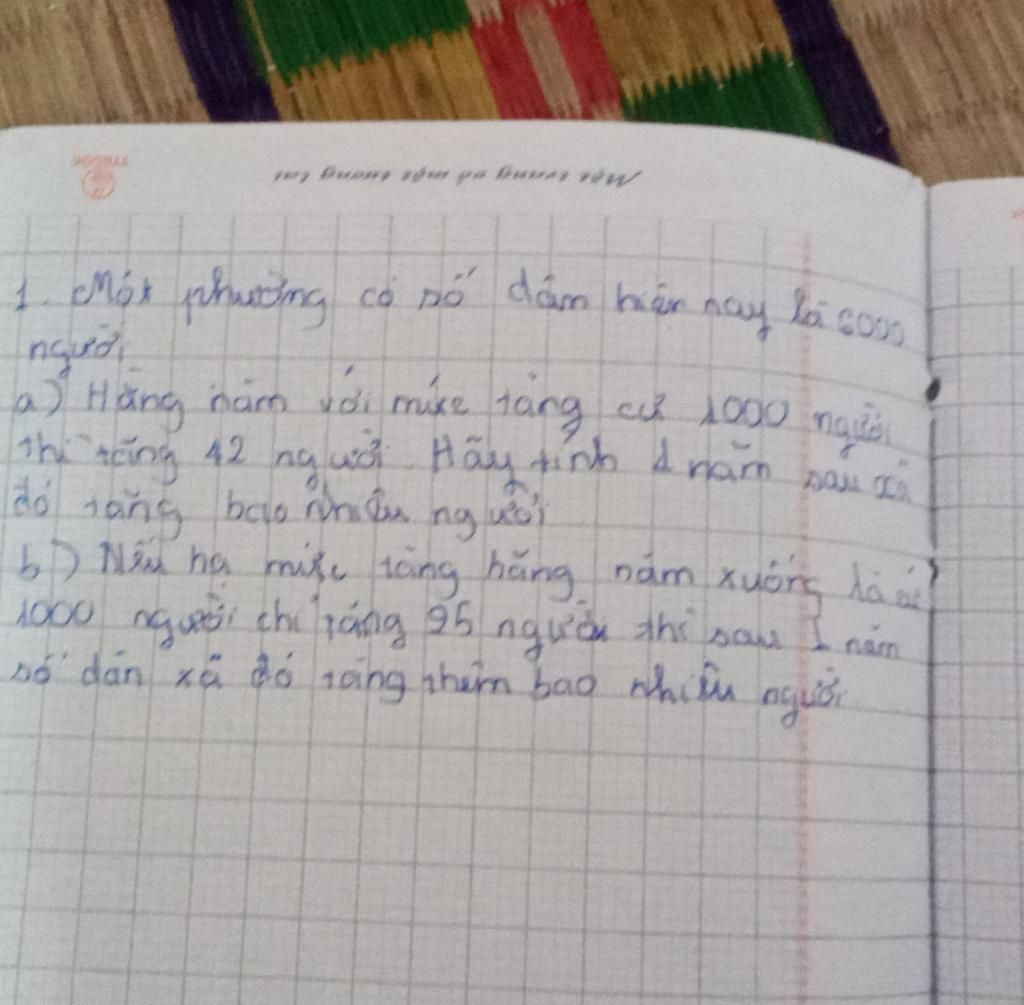 Một trang vở một tương lai
1. Một phường có số dân hiện nay là 6000
người
a) Hăng năm với mức tăng cứ 1000 người
thì tăng 42 người. Hãy tính 1 năm sau xã
đó tăng bao nhiêu người
b) Nếu hạ mức tăng hăng năm xuống là cứ
1000 người chỉ tăng 95 người thì sau 1 năm
số dân xã đó tăng thêm bao nhiêu người